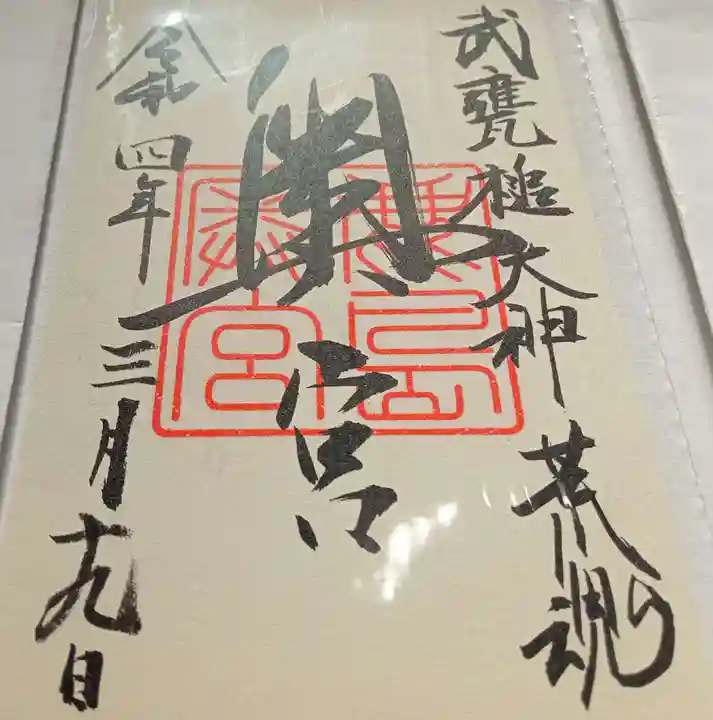 武甕槌大神 荒魂
奥宮
鹿島
奥宮
令和四年三月十九日